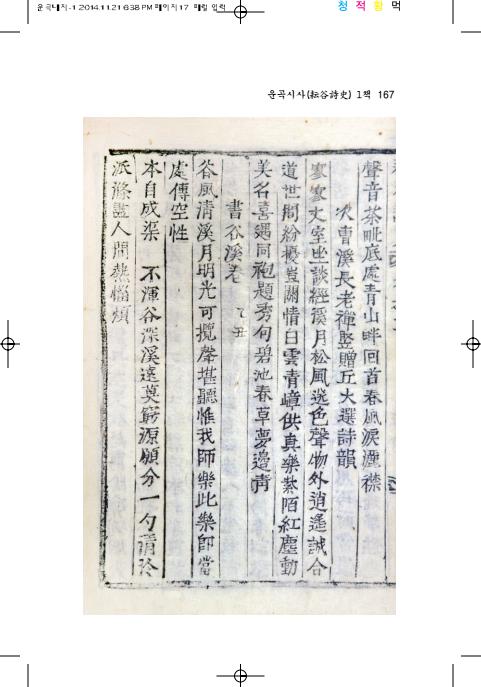 운곡시사-1 2014.11.21 6:38 PM 페이지17
청 적 황 먹
운곡시사(耘谷詩史) 1책 167
聲音茶毗底處靑山畔回首春風淚灑襟
次曹溪長老禪竪贈丘大選詩韻
寥寥丈室坐談經溪月松風選色聲物外逍遙誠合
道世間紛擾豈關情白雲靑嶂供真樂紫陌紅塵動
美名喜遇同袍題秀句碧池春草夢邊靑
書谷溪卷 乙丑
谷風淸溪月明光可攬聲堪聽惟我師樂此樂師當
處傳空性
本自成渠 不渾谷深溪遠莫窮源願分一勺淸泠
派滌盡人間熱惱煩